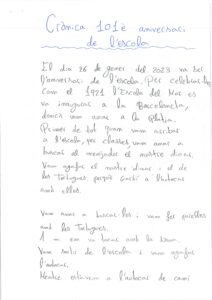 Crònica 101è aniversari
de l'escola
El dia 26 de gener del 2023 va ser
l'aniversari de l'escola. Per celebrar-ho
Com el 1921 l'Escola del Mar es
va inaugurar a la Barceloneta,
doncs vam anar a la Platja.
Primer de tot quan vam arribar
a l'escola, per classes, vam anar a
buscar al menjador el nostre dinar.
Vam agafar el nostre dinar i el de
les Tortugues, perquè anàvem a l'autocar
amb elles.
Vam anar a buscar-les i vam fer parelles
amb les Tortugues.
A mi em va tocar amb la
Vam sortir de l'escola i vam agafar
l'autocar.
Mentre estàvem a l'autocar de camí